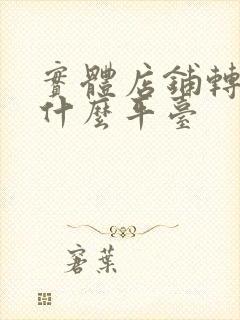 實體店鋪轉
什麼平臺
窨葉